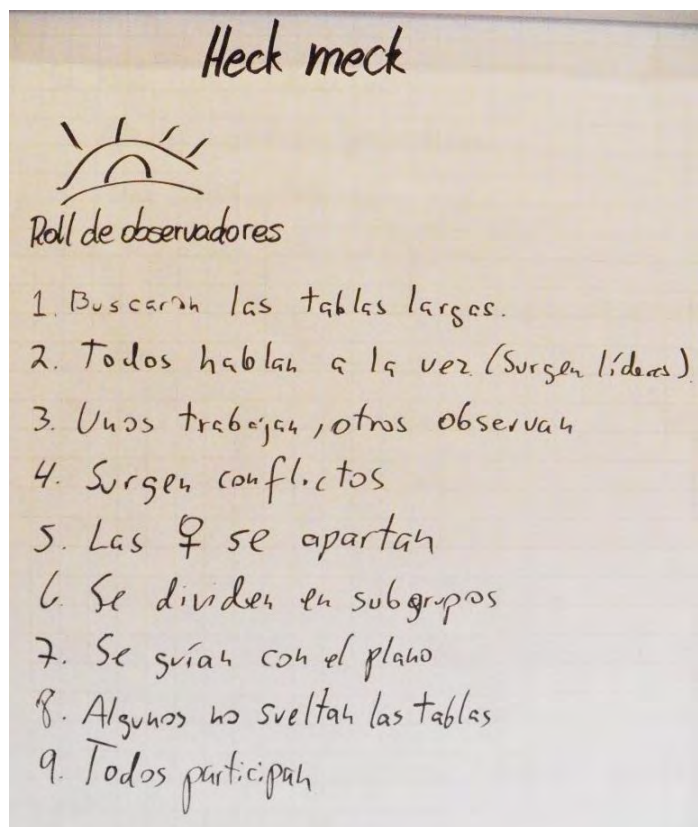 Heck meck
Roll de observadores
1. Buscarón las tablas largas.
2. Todos hablan a la vez (Surgen líderes)
3. Unos trabajan, otros observan
4. Surgen conflictos
5. Las ♀ se apartan
6. Se dividen en subgrupos
7. Se guían con el plano
8. Algunos no sueltan las tablas
9. Todos participan